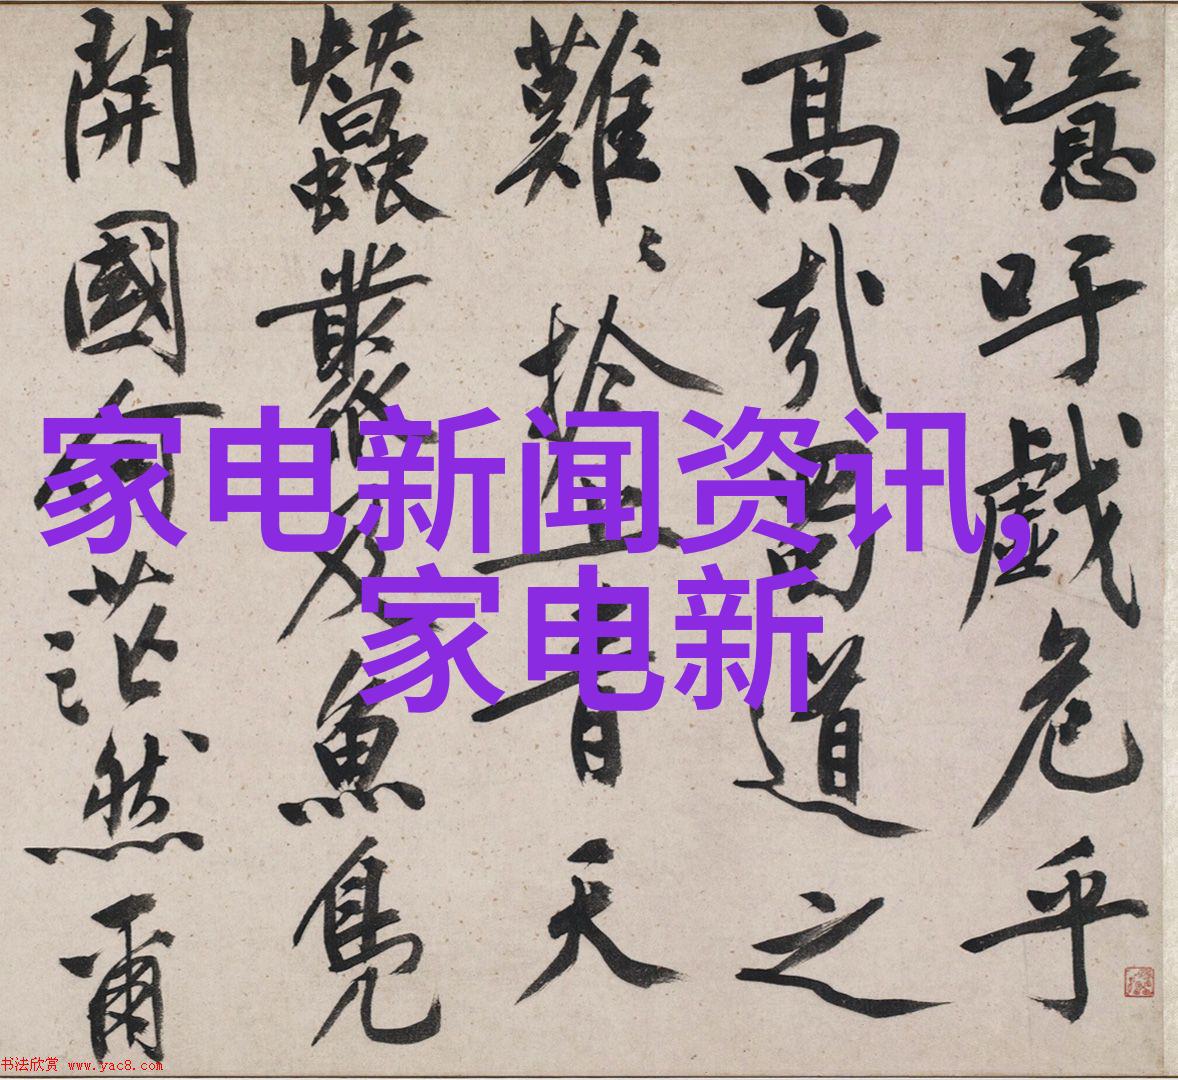 噫吁戲危乎
高哉蜀道之
難〻於上青天
蠶叢及魚鳧
開國何茫然爾
家电新闻资讯,
家电新
书法欣赏 www.yac8.com